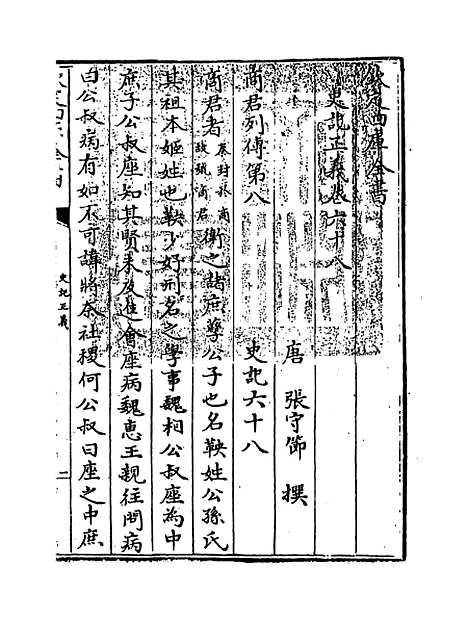 欽定四庫全書
史記正義卷六十八
唐 張守節 撰
商君列傳第八 史記六十八
商君者秦封於商故號商君衛之諸庶孽公子也名鞅姓公孫氏
其祖本姬姓也鞅少好刑名之學事魏相公叔座為中
庶子公叔座知其賢未及進會座病魏惠王親往問病
曰公叔病有如不可諱將奈社稷何公叔曰座之中庶
史記正義